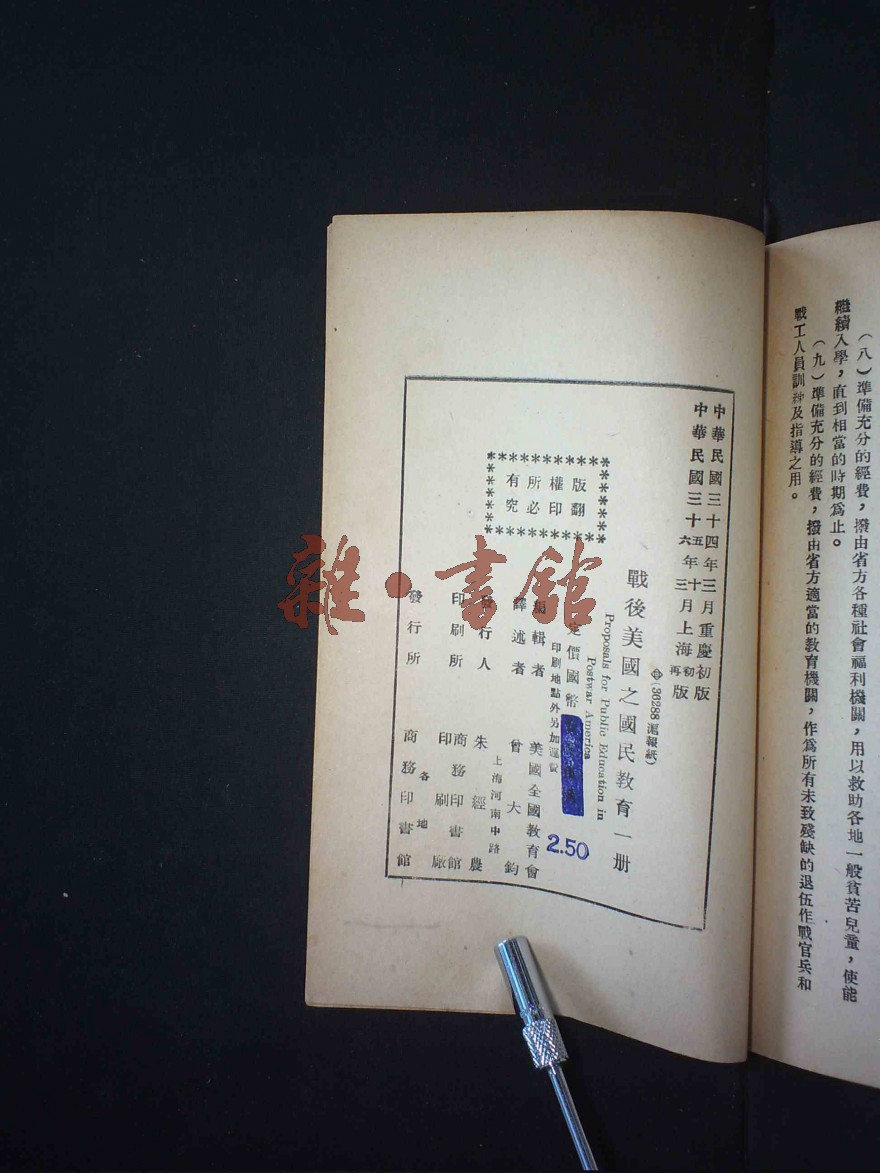 繼續入學，直到相當的時期爲止。
（八）準備充分的經費，撥由省方各種社會福利機關，用以救助各地一般貧苦兒童，使能
（九）準備充分的經費，撥由省方適當的教育機關，作爲所有未致殘缺的退伍作戰官兵和
戰工人員訓練及指導之用。
中華民國三十四年三月重慶初版
中華民國三十五年十月上海初版
三十六年三月上海再版
(36288滬報紙)
戰後美國之國民教育一册
Proposals for Public Education in
Postwar America
定價國幣
2.50
印刷地點外另加運費
版權所有
翻印必究
編輯者 美國全國教育會
譯述者 曾大鈞
發行人 朱經農
上海河南中路
印刷所 商務印書館印刷廠
發行所 商務印書館
各地
雜·書舘